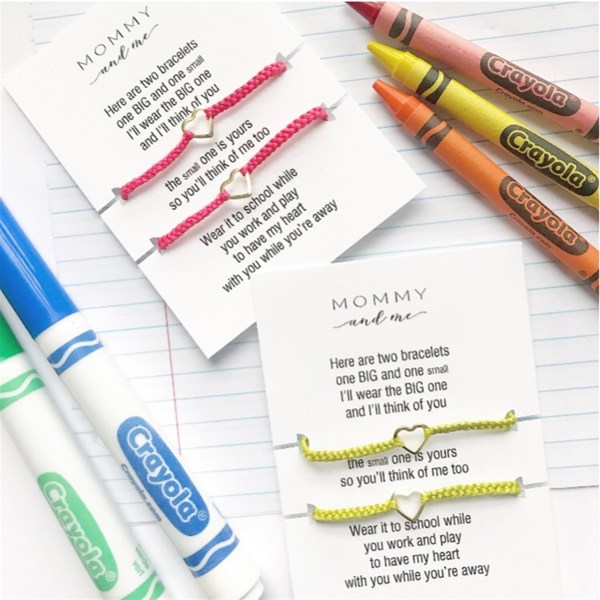 MOMMY
and me
Here are two bracelets
one BIG and one small
I'll wear the BIG one
and I'll think of you
the small one is yours
so you'll think of me too
Wear it to school while
you work and play
to have my heart
with you while you're away
MOMMY
and me
Here are two bracelets
one BIG and one small
I'll wear the BIG one
and I'll think of you
the small one is yours
so you'll think of me too
Wear it to school while
you work and play
to have my heart
with you while you're away
Crayola
Crayola
Crayola
Crayola
Crayola